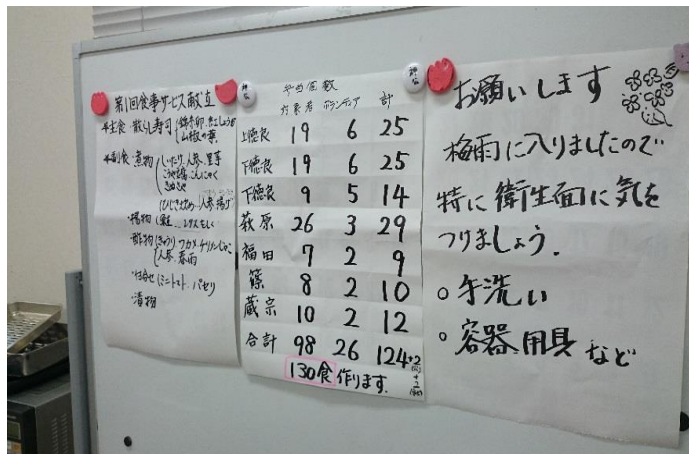 第1回食事サービス献立
主食 散らし寿司
山椒の葉
副食 煮物 しいたけ、人参、里芋
こんにゃく
きぬさや
ひじき炒め 人参 揚げ
揚物 鮭
酢物 きゅうり ワカメ チリメンじゃこ
人参、春雨
付合せ ミニトマト、パセリ
漬物
弁当個数
対象者 ボランティア 計
上徳良 19 6 25
下徳良 19 6 25
下徳良 9 5 14
萩原 26 3 29
福田 7 2 9
篠 8 2 10
蔵宗 10 2 12
合計 98 26 124+2
130食作ります.
お願いします
梅雨に入りましたので
特に衛生面に気を
つけましょう.
○ 手洗い
○ 容器、用具 など